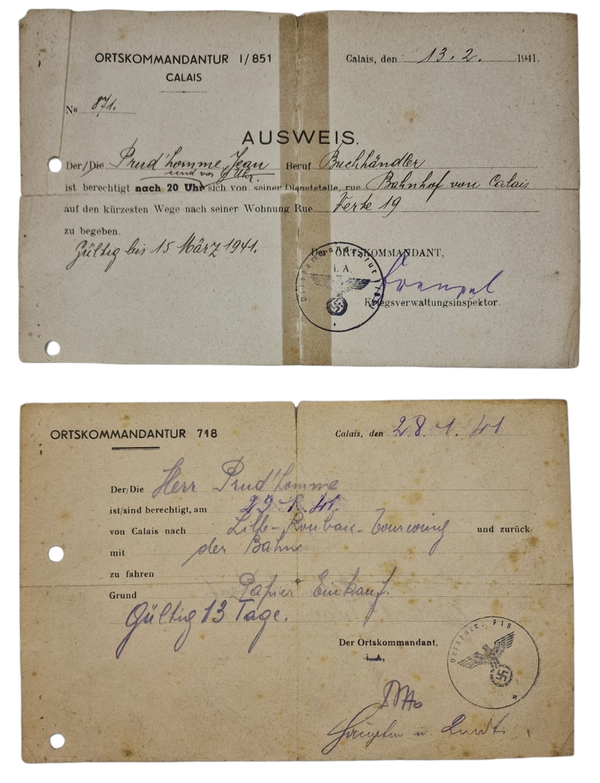 ORTSKOMMANDANTUR I/851
CALAIS
Calais, den 13.2. 1941.
No 871.
AUSWEIS.
Der/Die Prud'homme, Jean Beruf Buchhändler
und vor 6 Uhr.
ist berechtigt nach 20 Uhr sich von seiner Dienststelle, rue Bahnhof von Calais
auf den kürzesten Wege nach seiner Wohnung Rue Verte 19
zu begeben.
Gültig bis 15 März 1941.
Der ORTSKOMMANDANT,
i. A.
Kriegsverwaltungsinspektor.
ORTSKOMMANDANTUR 718
Calais, den 28.1.41
Der/Die Herr Prud'homme
ist/sind berechtigt, am 29.1.41.
von Calais nach Lille-Roubaix-Tourcoing und zurück
mit der Bahn
zu fahren
Grund Papier Einkauf.
Gültig 13 Tage.
Der Ortskommandant,
i. A.
718